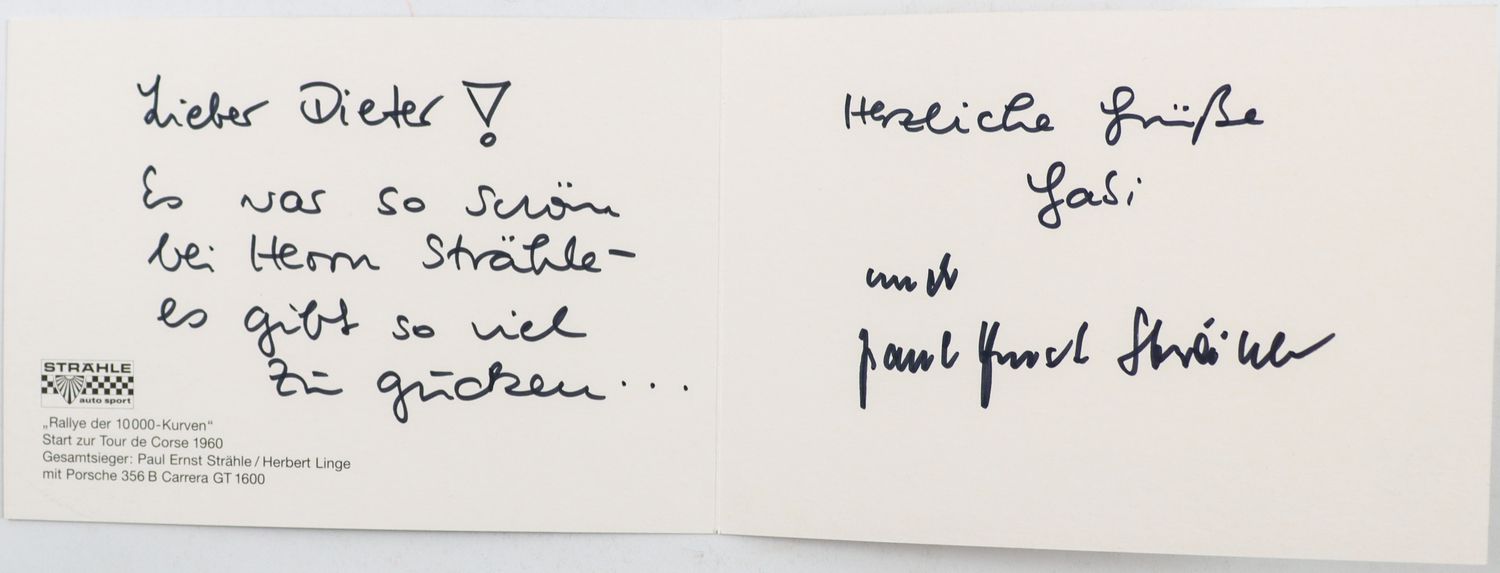 Lieber Dieter!
Es war so schön
bei Herrn Strähle-
es gibt so viel
zu gucken...
STRÄHLE
auto sport
„Rallye der 10000-Kurven“
Start zur Tour de Corse 1960
Gesamtsieger: Paul Ernst Strähle/Herbert Linge
mit Porsche 356 B Carrera GT 1600
Herzliche Grüße
Gabi
und
Paul Ernst Strähle